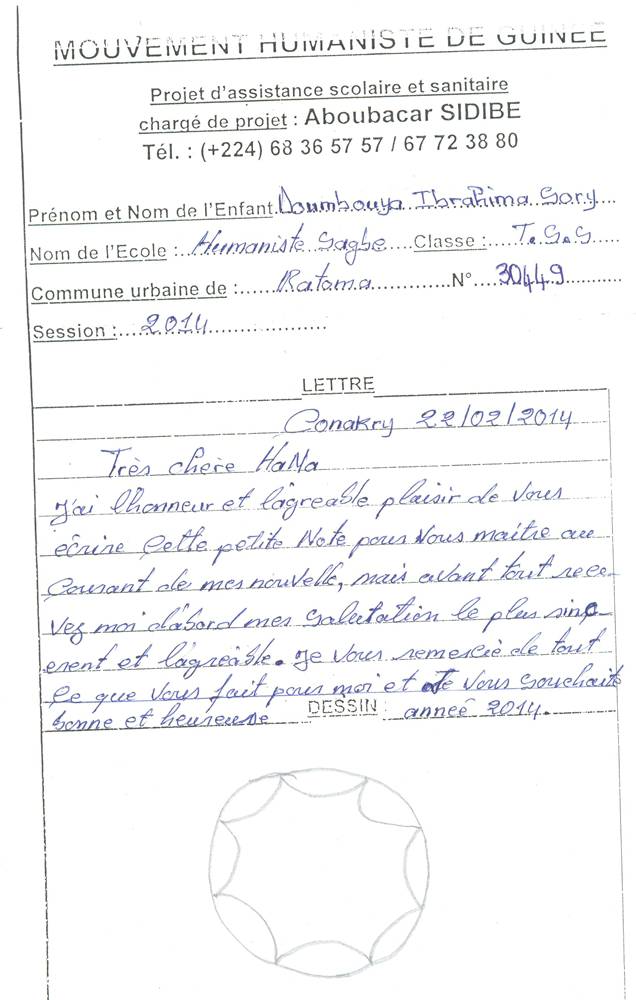 MOUVEMENT HUMANISTE DE GUINEE
Projet d'assistance scolaire et sanitaire
chargé de projet : Aboubacar SIDIBE
Tél. : (+224) 68 36 57 57 / 67 72 38 80
Prénom et Nom de l'Enfant Doumbouya Ibrahima Sory
Nom de l'Ecole : Humaniste Sagbe Classe : T.S.S
Commune urbaine de : Ratoma N° 30449
Session : 2014
LETTRE
Conakry 22/02/2014
Très chere HaNa
J'ai lhonneur et lágreable plaisir de Vous
ecrire Cette petite Note pour Vous maitre au
Courant de mes nouvelle, mais avant tout rece-
vez moi d'abord mes Salutation le plus sinc-
erent et lágreable. Je Vous remercie de tout
Ce que Vous fait pour moi et Je Vous Souchait
bonne et heureuse anneé 2014.
DESSIN :